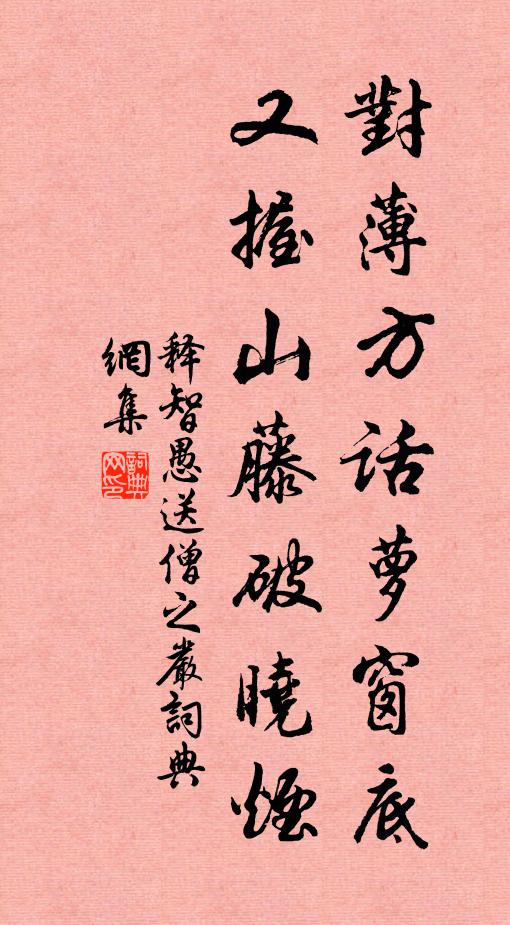 對薄方話夢窗底
又握山藤破曉煙
释智愚送僧之嚴詞典
網集
詞典
网印